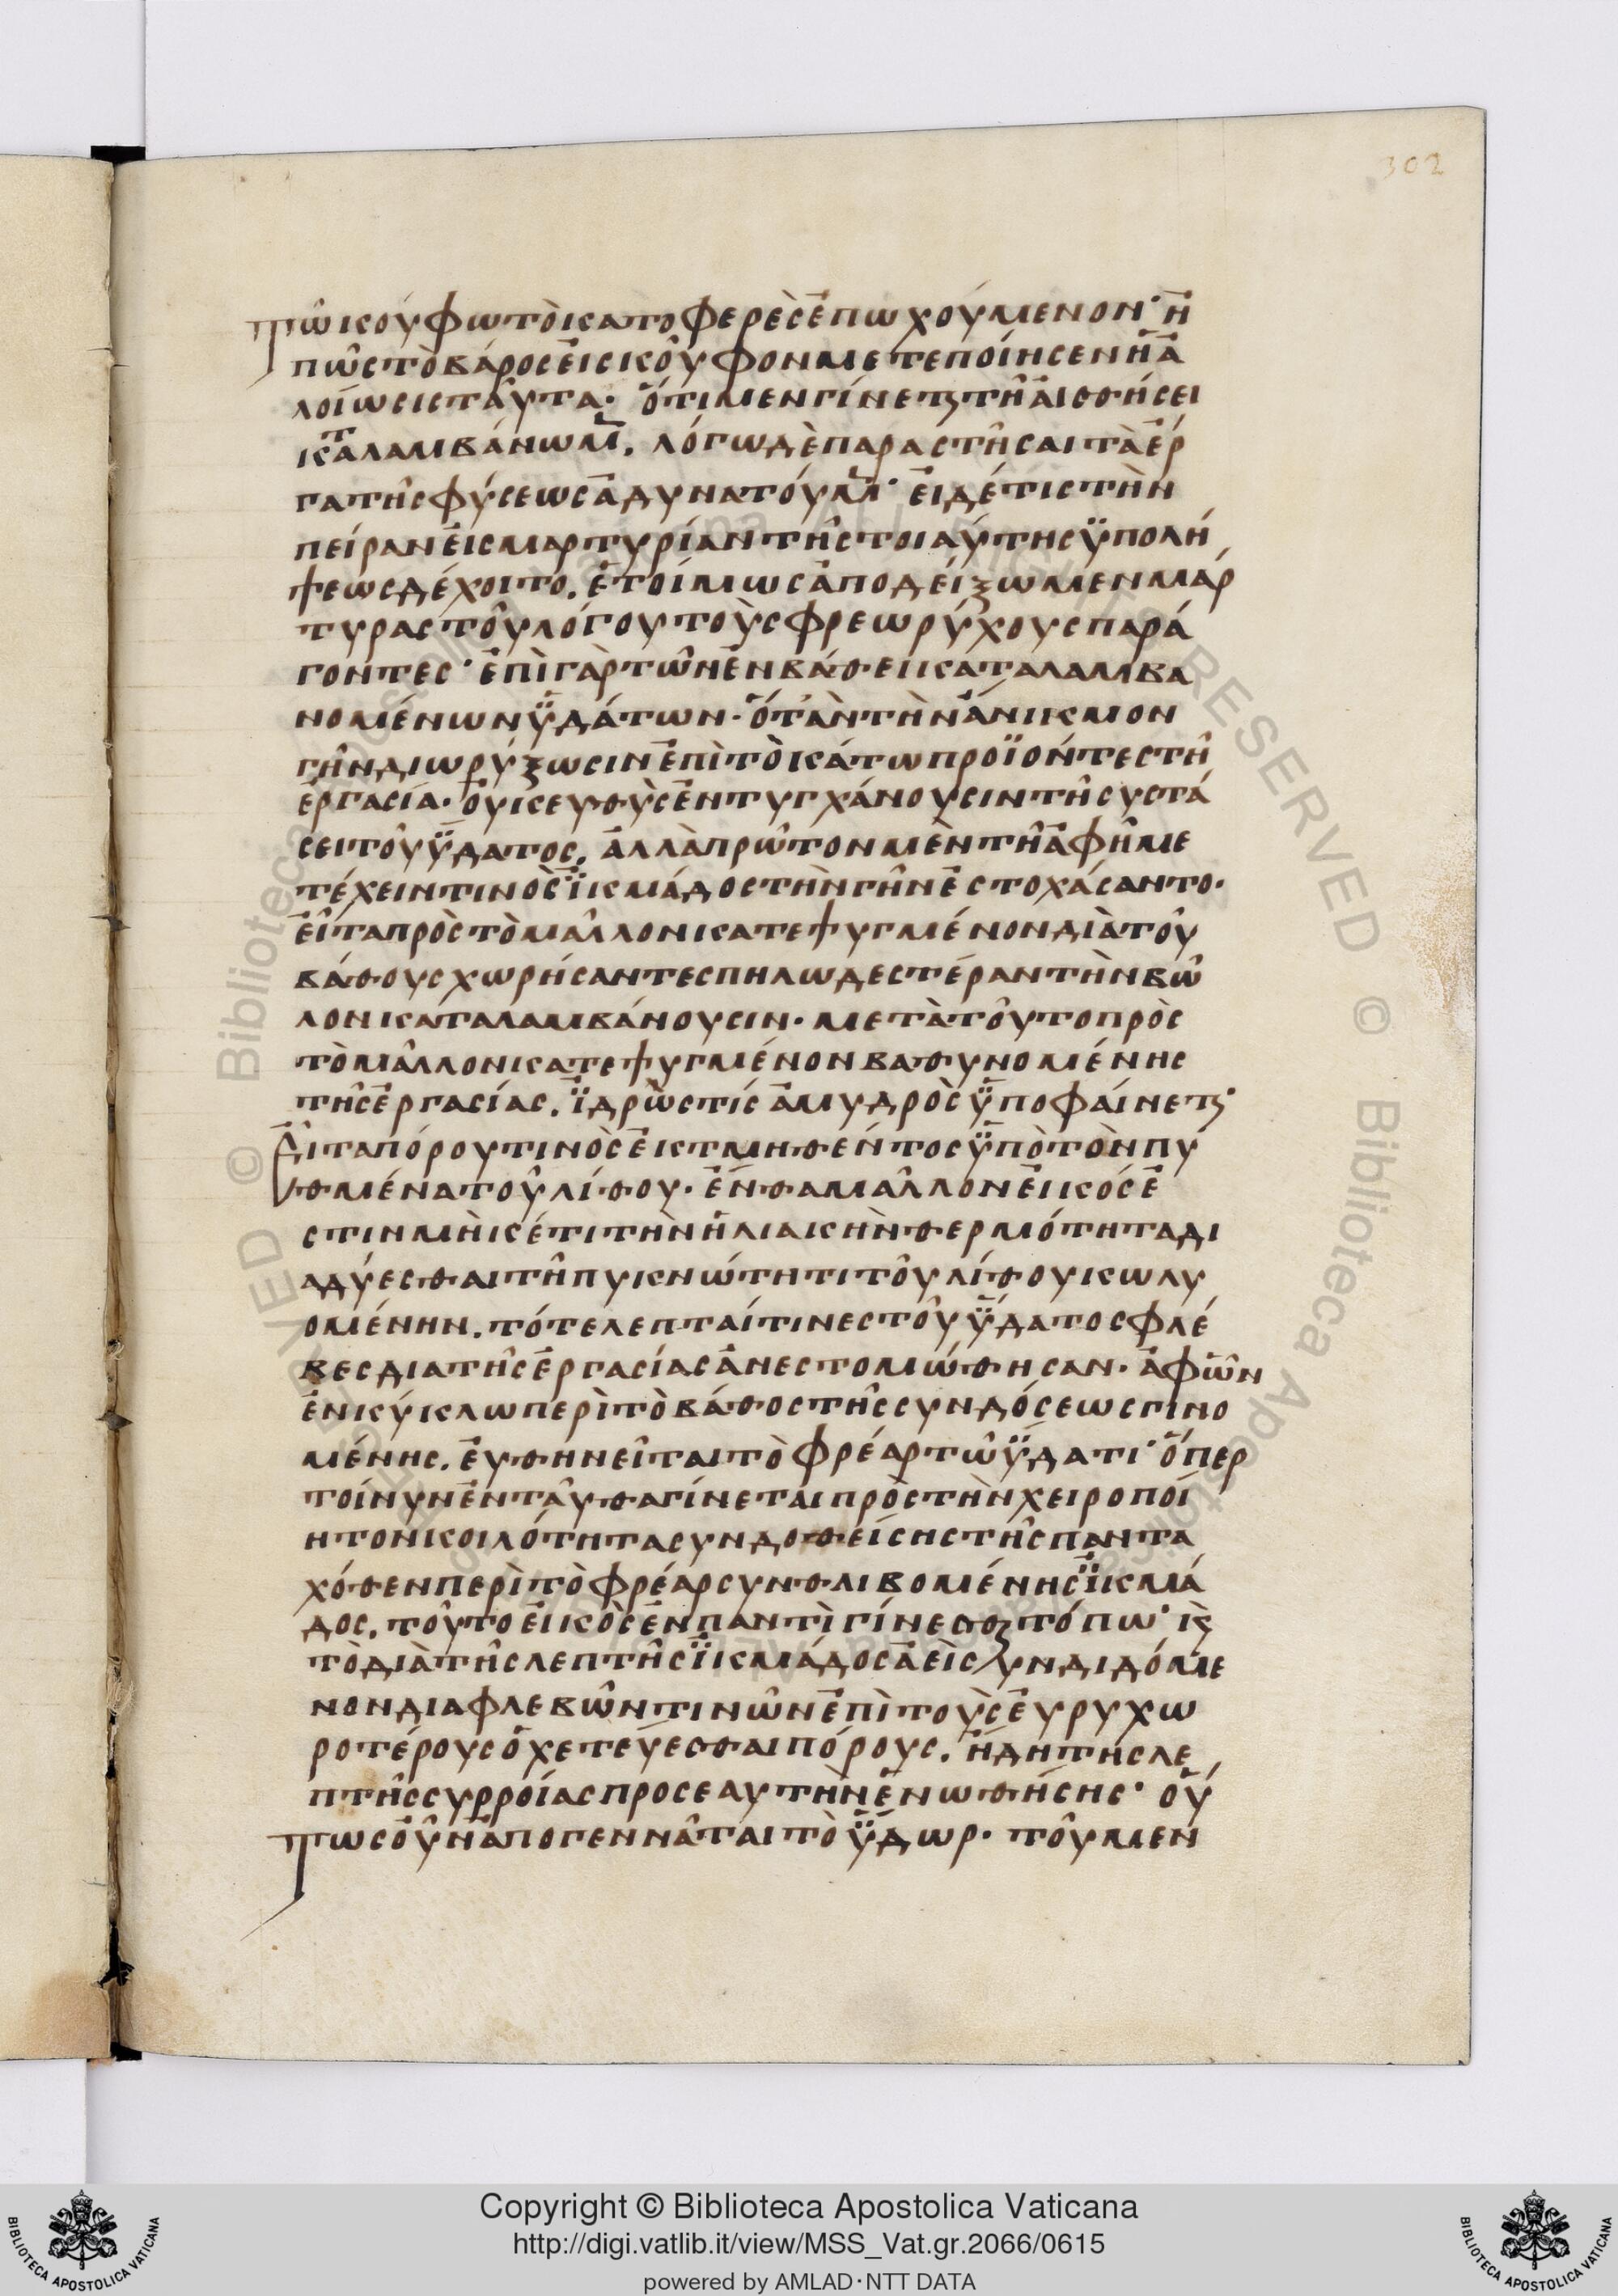 302
τῶ κούφω τὸ κατοφερὲς ἐπωχούμενον· ἢ
πῶς τὸ βάρος εἰς κοῦφον μετεποίησεν ἡ ἀ
λοίωσις ταῦτα· ὅτι μεν γίνετϗ τῆ αἰσθήσει
κ̅αταλαμβάνωμ̅. λόγω δὲ παραστῆσαι τὰ ἔρ
γα τῆς φύσεως ἀδυνατόυμ̅· εἰ δέ τις τὴν
πείραν εἰς μαρτυρίαν τῆς τοιαύτης ὑπολή
ψεως δέχοιτο. ἑτοίμως ἀποδείξωμεν μάρ
τυρας τοῦ λόγου τοὺς φρεωρύχους παρά
γοντες· ἐπὶ γὰρ τῶν ἐν βάθει καταλαμβα
νομένων ὑδάτων· ὅτ' ἂν τὴν ἄνικμον
γῆν διωρύξωσιν ἐπὶ τὸ κάτω προϊόντες τῆ
ἐργασία· οὐκ ευθὺς ἐντυγχάνουσιν τῆ συστά
σει τοῦ ὕδατος. ἀλλὰ πρῶτον μὲν τῆ ἀφῆ με
τέχειν τινὸς ἰκμάδος τὴν γῆν ἐστοχάσαντο·
εἶτα πρὸς τὸ μᾶλλον κατεψυγμένον διὰ τοῦ
βάθους χωρήσαντες πηλωδεστέραν τὴν βῶ
λον καταλαμβάνουσιν· μετὰ τοῦτο πρὸς
τὸ μᾶλλον κατεψυγμένον βαθυνομένης
τῆς ἐργασίας. ἱδρὼς τίς ἀμυδρὸς ὑποφαίνετϗ·
Εἶτα πόρου τινὸς ἐκτμηθέντος ὑπὸ τὸν πυ
θμένα τοῦ λίθου· ἔνθα μᾶλλον εἰκός ἐ
στιν μὴκέτι τὴν ἡλιακὴν θερμότητα δι
αδύεσθαι τῆ πυκνώτητι τοῦ λίθου κωλυ
ομένην. τότε λεπταί τινες τοῦ ὕδατος φλέ
βες δια τῆς ἐργασίας ἀνεστομώθησαν· ἀφ ὧν
ἐν κύκλω περὶ τὸ βάθος τῆς συνδόσεως γινο
μένης. ἐυθηνεῖται τὸ φρέαρ τῶ ὕδατι· ὅπερ
τοίνυν ἐνταῦθα γίνεται πρὸς τὴν χειροποί
ητον κοιλότητα συνδοθείσης τῆς παντα
χόθεν περὶ τὸ φρέαρ συνθλιβομένης ἰκμά
δος. τοῦτο εἰκὸς ἐν παντὶ γίνεσθϗ τόπω· κϗ
τὸ διὰ τῆς λεπτῆς ἰκμάδος ἀεὶ συνδιδόμε
νον δια φλεβῶν τινῶν ἐπὶ τοὺς ἐυρυχω
ροτέρους ὀχετεύεσθαι πόρους. ἤδη τῆς λε
πτῆς συρροίας προς εαυτὴν ἑνωθήσης· οὕ
τως οὖν ἀπογεννᾶται τὸ ὕδωρ· τοῦ μεν
Copyright © Biblioteca Apostolica Vaticana
http://digi.vatlib.it/view/MSS_Vat.gr.2066/0615
powered by AMLAD·NTT DATA